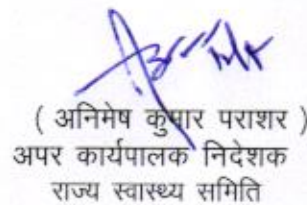 ( अनिमेष कुमार पराशर )
अपर कार्यपालक निदेशक
राज्य स्वास्थ्य समिति